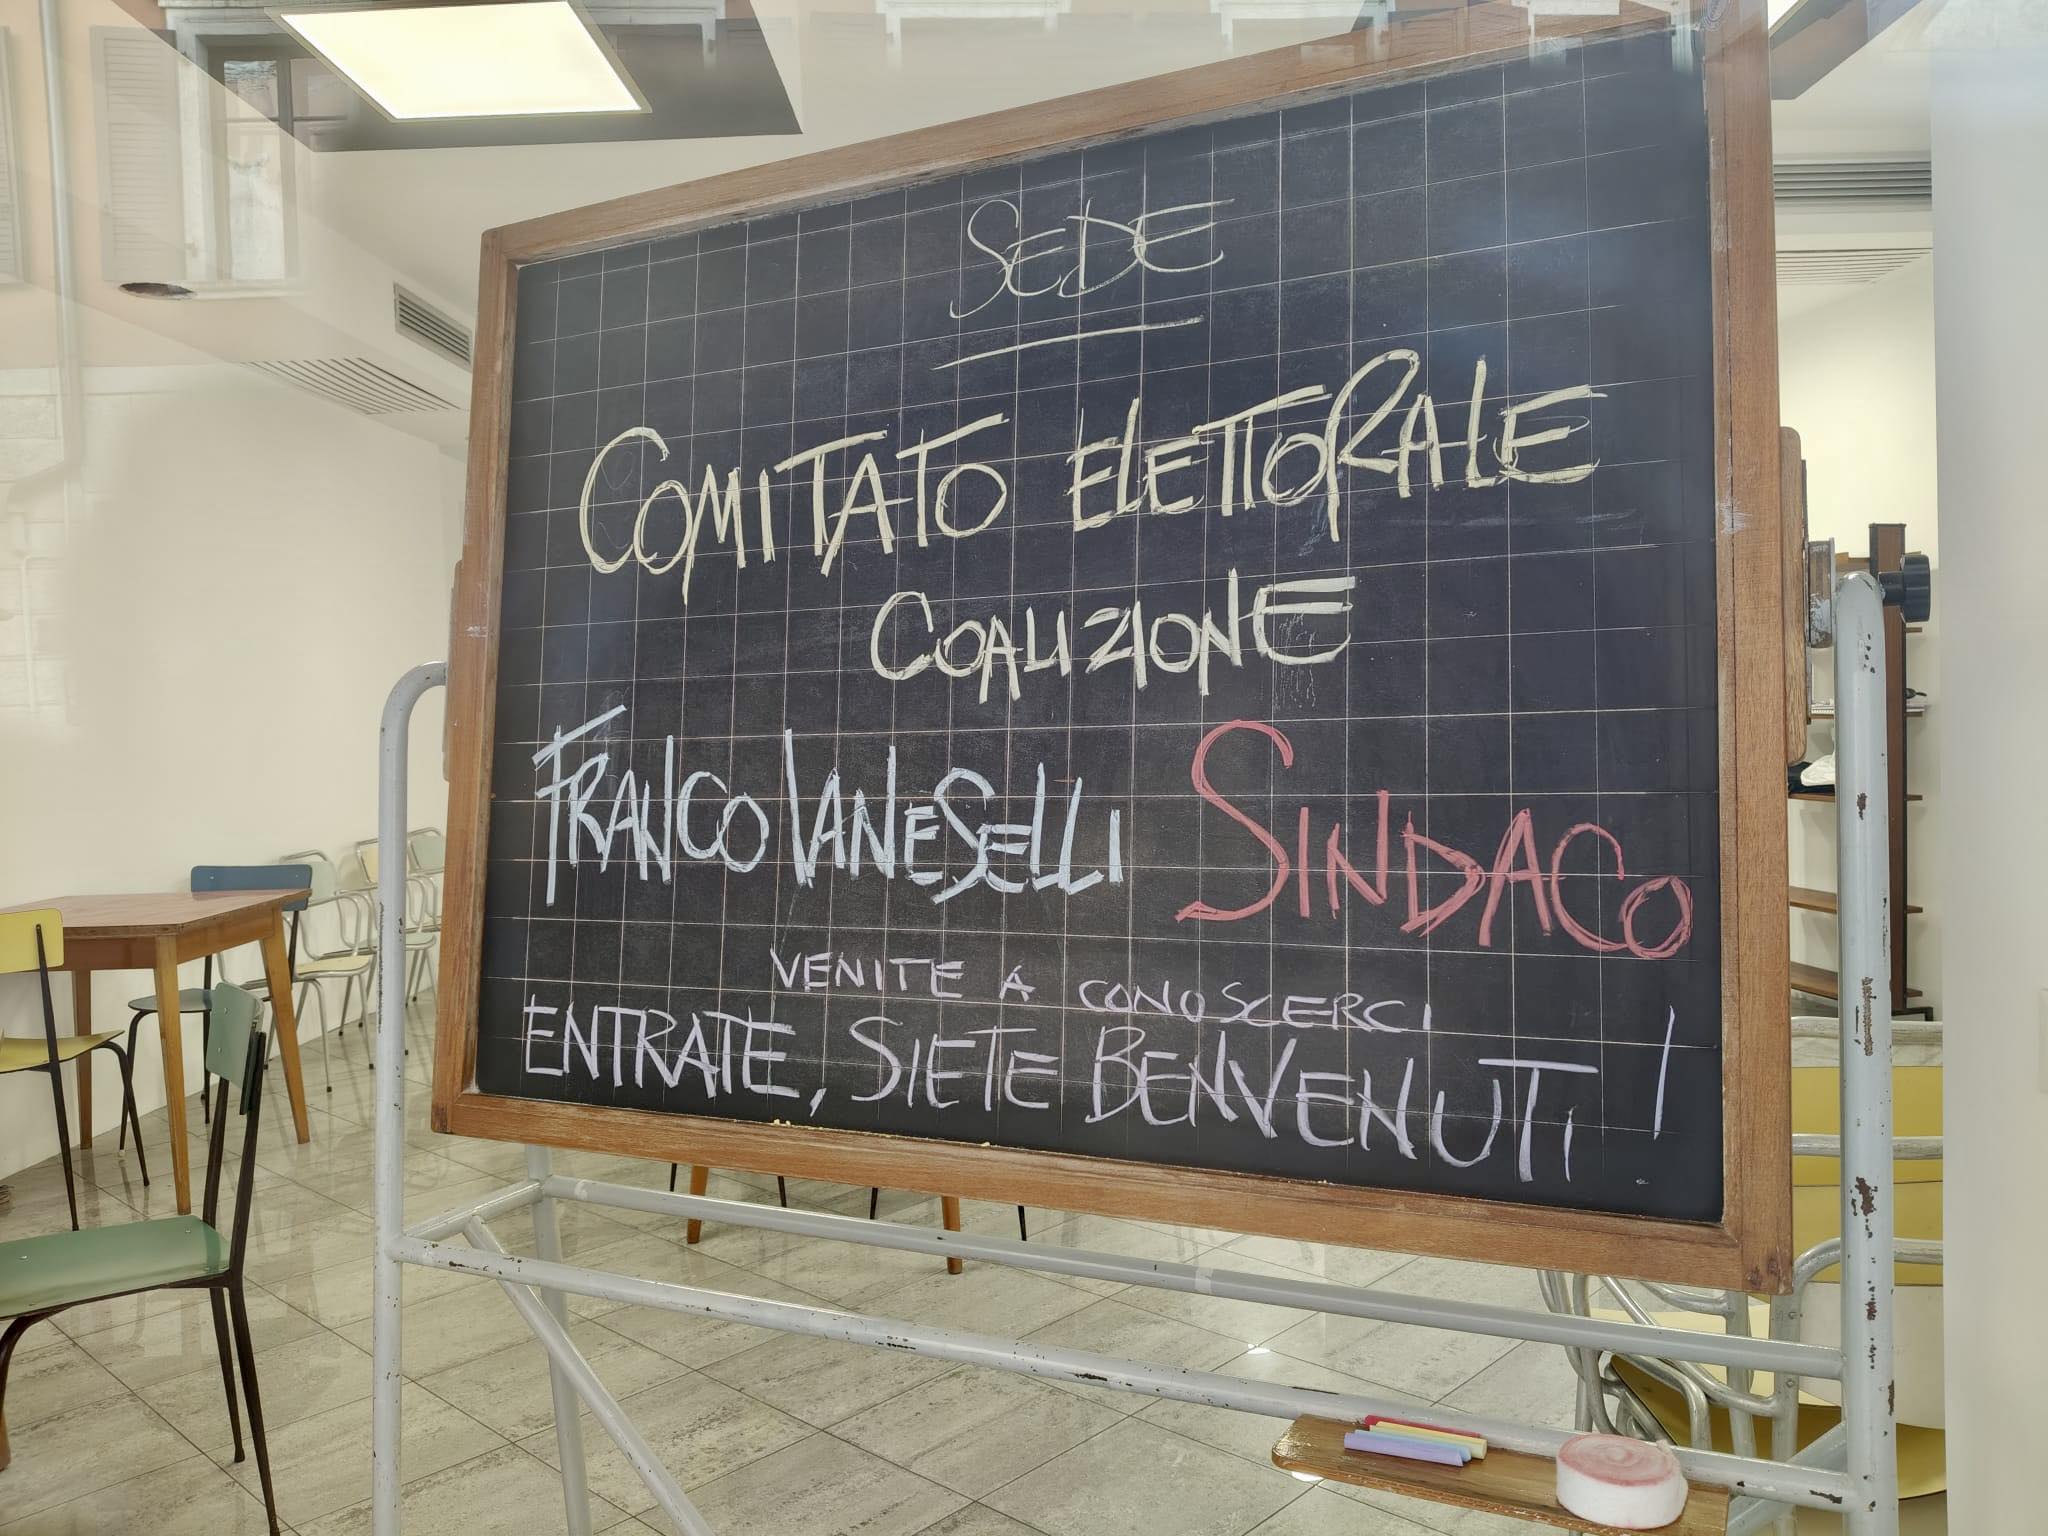 SEDE
COMITATO ELETTORALE
COALIZIONE
FRANCO IANESELLI SINDACO
VENITE A CONOSCERCI
ENTRATE, SIETE BENVENUTI!